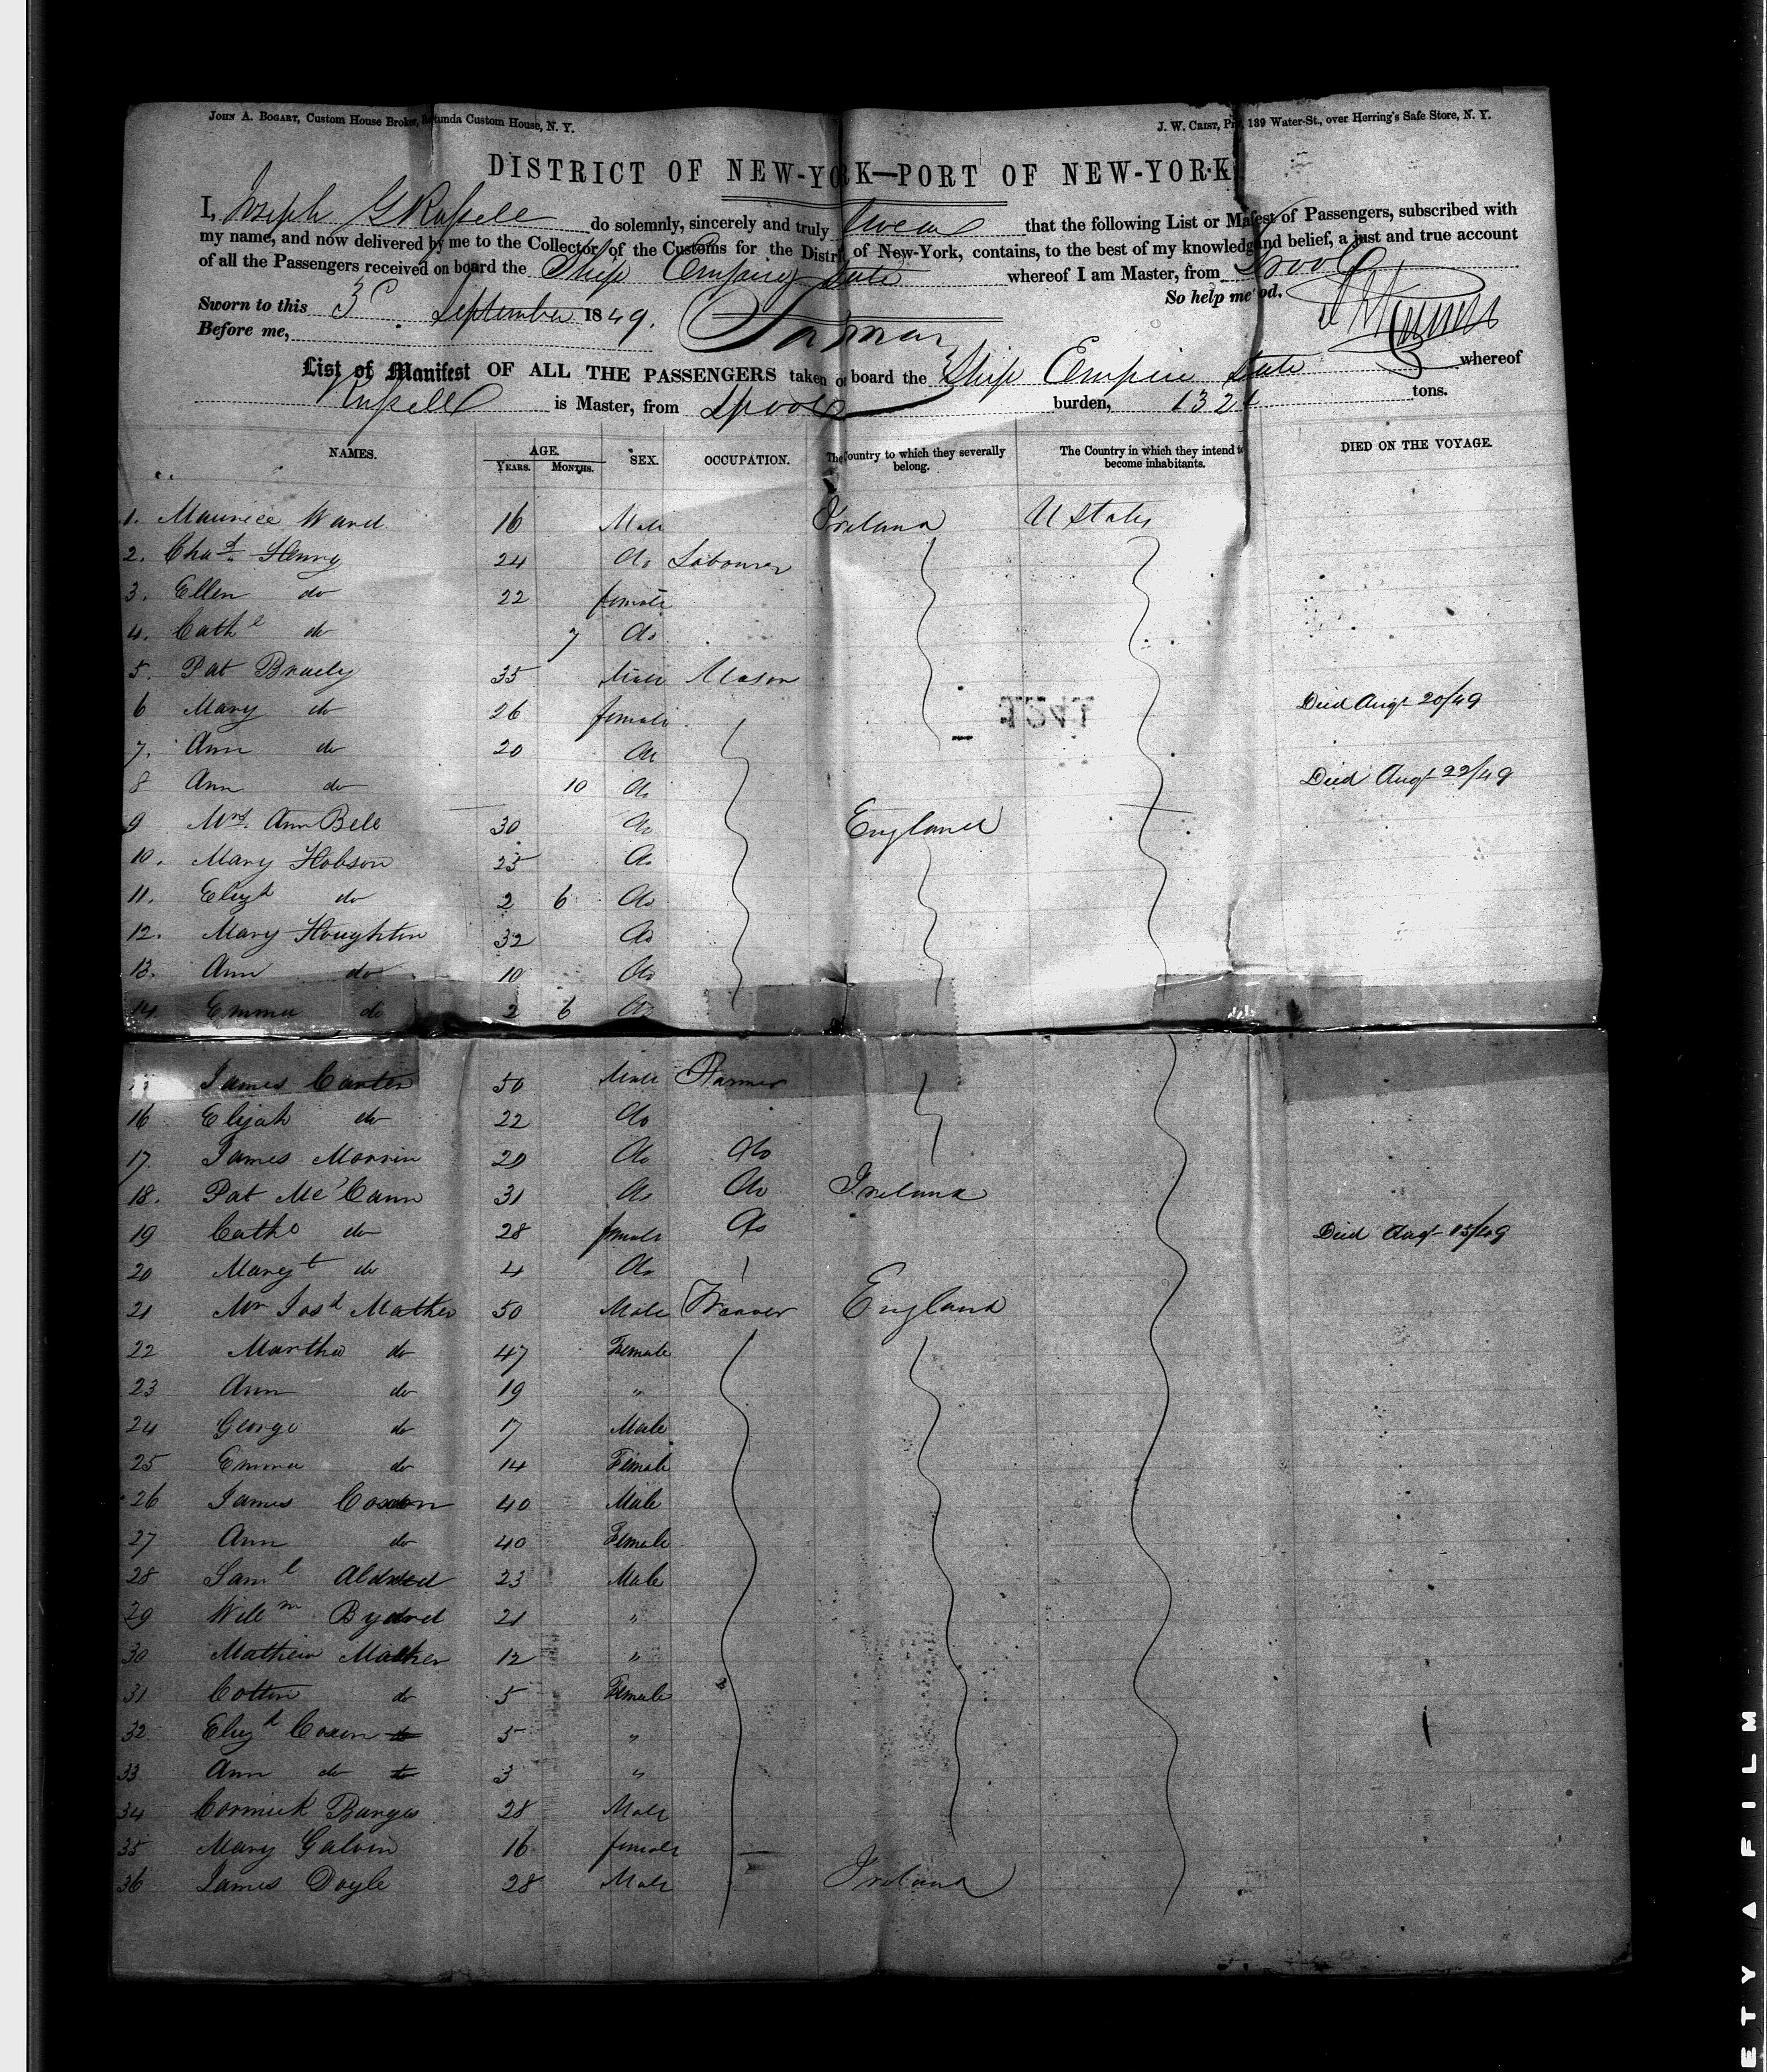 JOHN A. BOGART, Custom House Broker, Rotunda Custom House, N. Y. J. W. CRIST, Pr 139 Water-St., over Herring's Safe Store, N. Y.
DISTRICT OF NEW-YORK—PORT OF NEW-YORK
I, Joseph G Russell do solemnly, sincerely and truly swear that the following List or Mafest of Passengers, subscribed with
my name, and now delivered by me to the Collector of the Customs for the Distri of New-York, contains, to the best of my knowledg and belief, a just and true account
of all the Passengers received on board the Ship Empire State whereof I am Master, from Lpool
So help me od.
Sworn to this 3d September 1849.
Before me,
List of Manifest OF ALL THE PASSENGERS taken o board the Ship Empire State whereof
Russell is Master, from Lpool burden, 1324 tons.
NAMES. AGE. YEARS. MONTHS. SEX. OCCUPATION. The Country to which they severally belong. The Country in which they intend to become inhabitants. DIED ON THE VOYAGE.
1. Maurice Ward 16 Male Ireland U States
2. Chas Henry 24 do Labourer
3. Ellen do 22 female
4. Cathe do 7 do
5. Pat Brady 35 Male Mason
6 Mary do 26 female Died Augt 20/49
1241
7. Ann do 20 do
8 Ann do 10 do Died Augt 22/49
9 Mrs. Ann Bell 30 do England
10. Mary Hobson 25 do
11. Elizh do 2 6 do
12. Mary Houghton 32 do
13. Ann do 10 do
14. Emma do 2 6 do
James Carter 50 Male Farmer
16 Elijah do 22 do
17. James Morrin 20 do do
18. Pat Mc'Cann 31 do do Ireland
19 Cathe do 28 female do Died Augt 15/49
20 Margt do 4 do
21 Mr Josh Mather 50 Male Weaver England
22 Martha do 47 Female
23 Ann do 19 "
24 George do 17 Male
25 Emma do 14 Female
26 James Coxon 40 Male
27 Ann do 40 Female
28 Saml Aldred 23 Male
29 Willm 21 "
30 Mathew Mather 12 "
31 Cotton do 5 Female
32 Elizh Coxon do 5 "
33 Ann do do 3 "
34 Cormick Burges 28 Male
35 Mary Galvin 16 female
36 James Doyle 28 Male Ireland
ETY A FILM